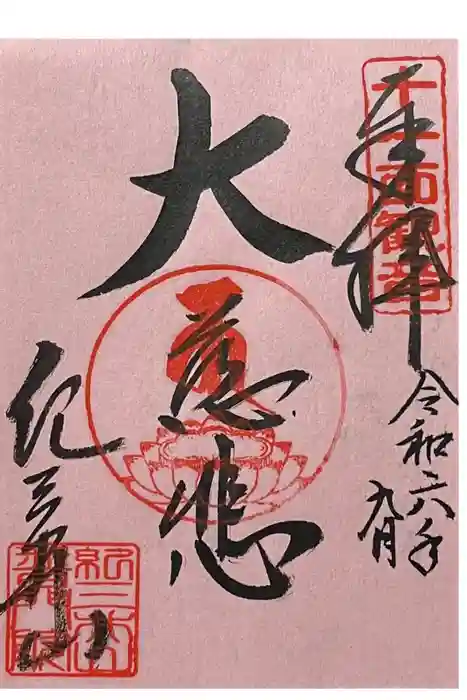 十一面観音
奉拝
令和六年
九月
大慈悲
紀三井山